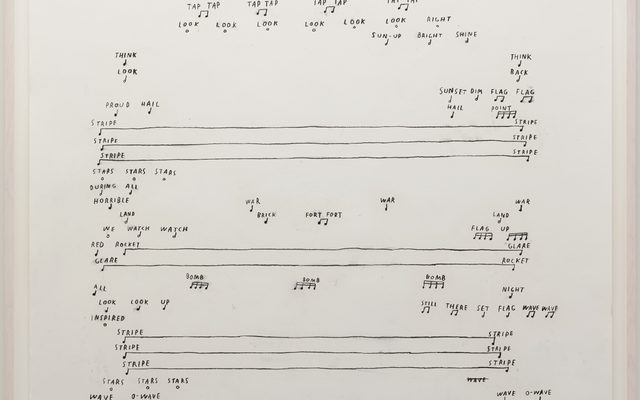 TAP TAP TAP TAP TAP TAP TAP TAP
LOOK LOOK LOOK LOOK LOOK LOOK RIGHT
SUN-UP BRIGHT SHINE
THINK THINK
LOOK BACK
SUNSET DIM FLAG FLAG
PROUD HAIL HALL POINT
STRIPE STRIPE
STRIPE STRIPE
STRIPE STRIPE
STARS STARS STARS
DURING ALL
HORRIBLE WAR WAR WAR
LAND BRICK FORT FORT LAND
WE WATCH WATCH FLAG UP
RED ROCKET GLARE
GLARE ROCKET
BOMB BOMB BOMB
ALL NIGHT
LOOK LOOK UP STILL THERE SET FLAG WAVE WAVE
INSPIRED
STRIPE STRIPE
STRIPE STRIPE
STRIPE STRIPE
STARS STARS STARS WAVE
WAVE O-WAVE WAVE O-WAVE